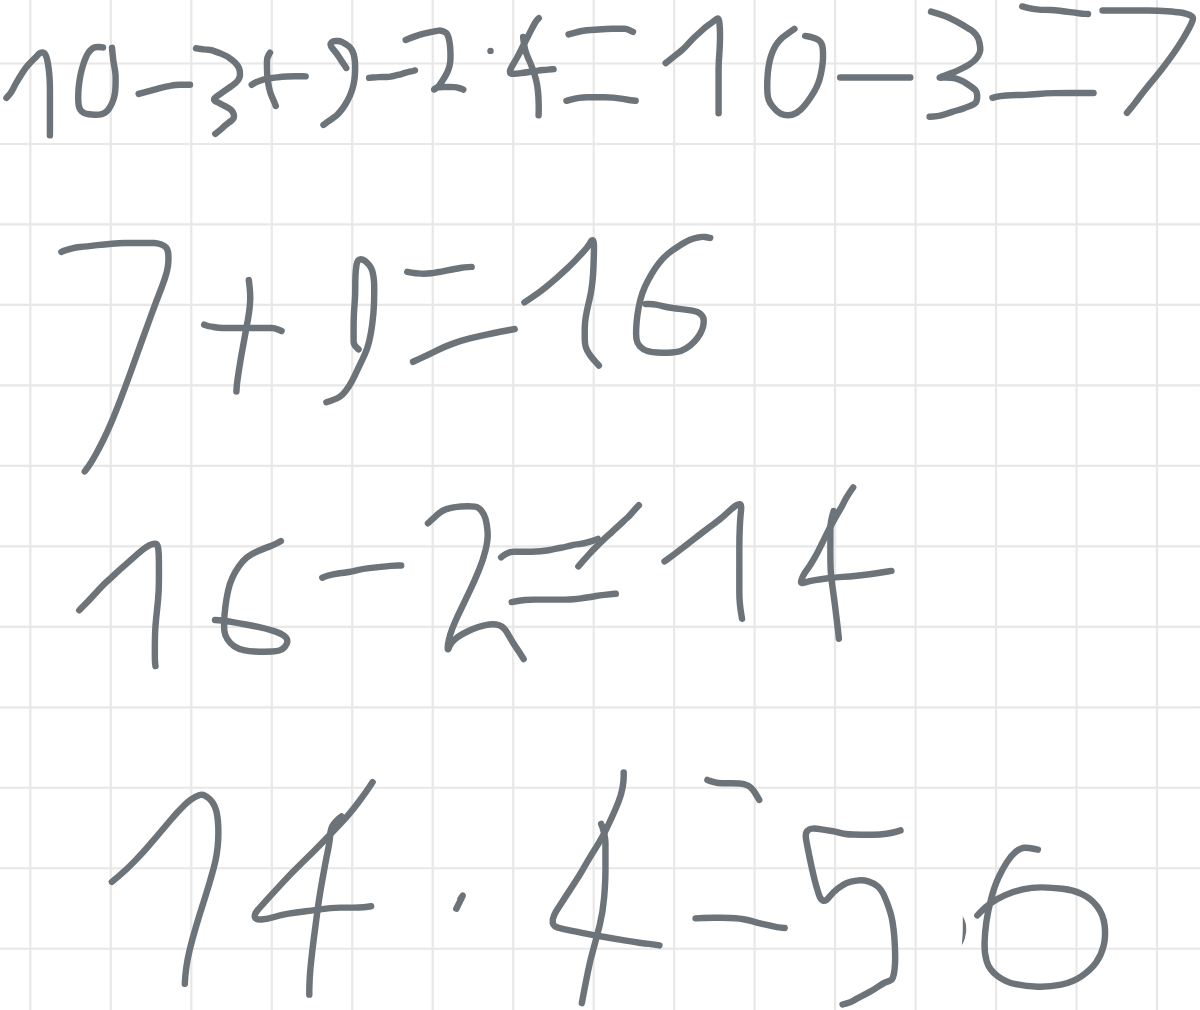 10-3+9-2·4=10-3=7
7+9=16
16-2=14
14·4=56